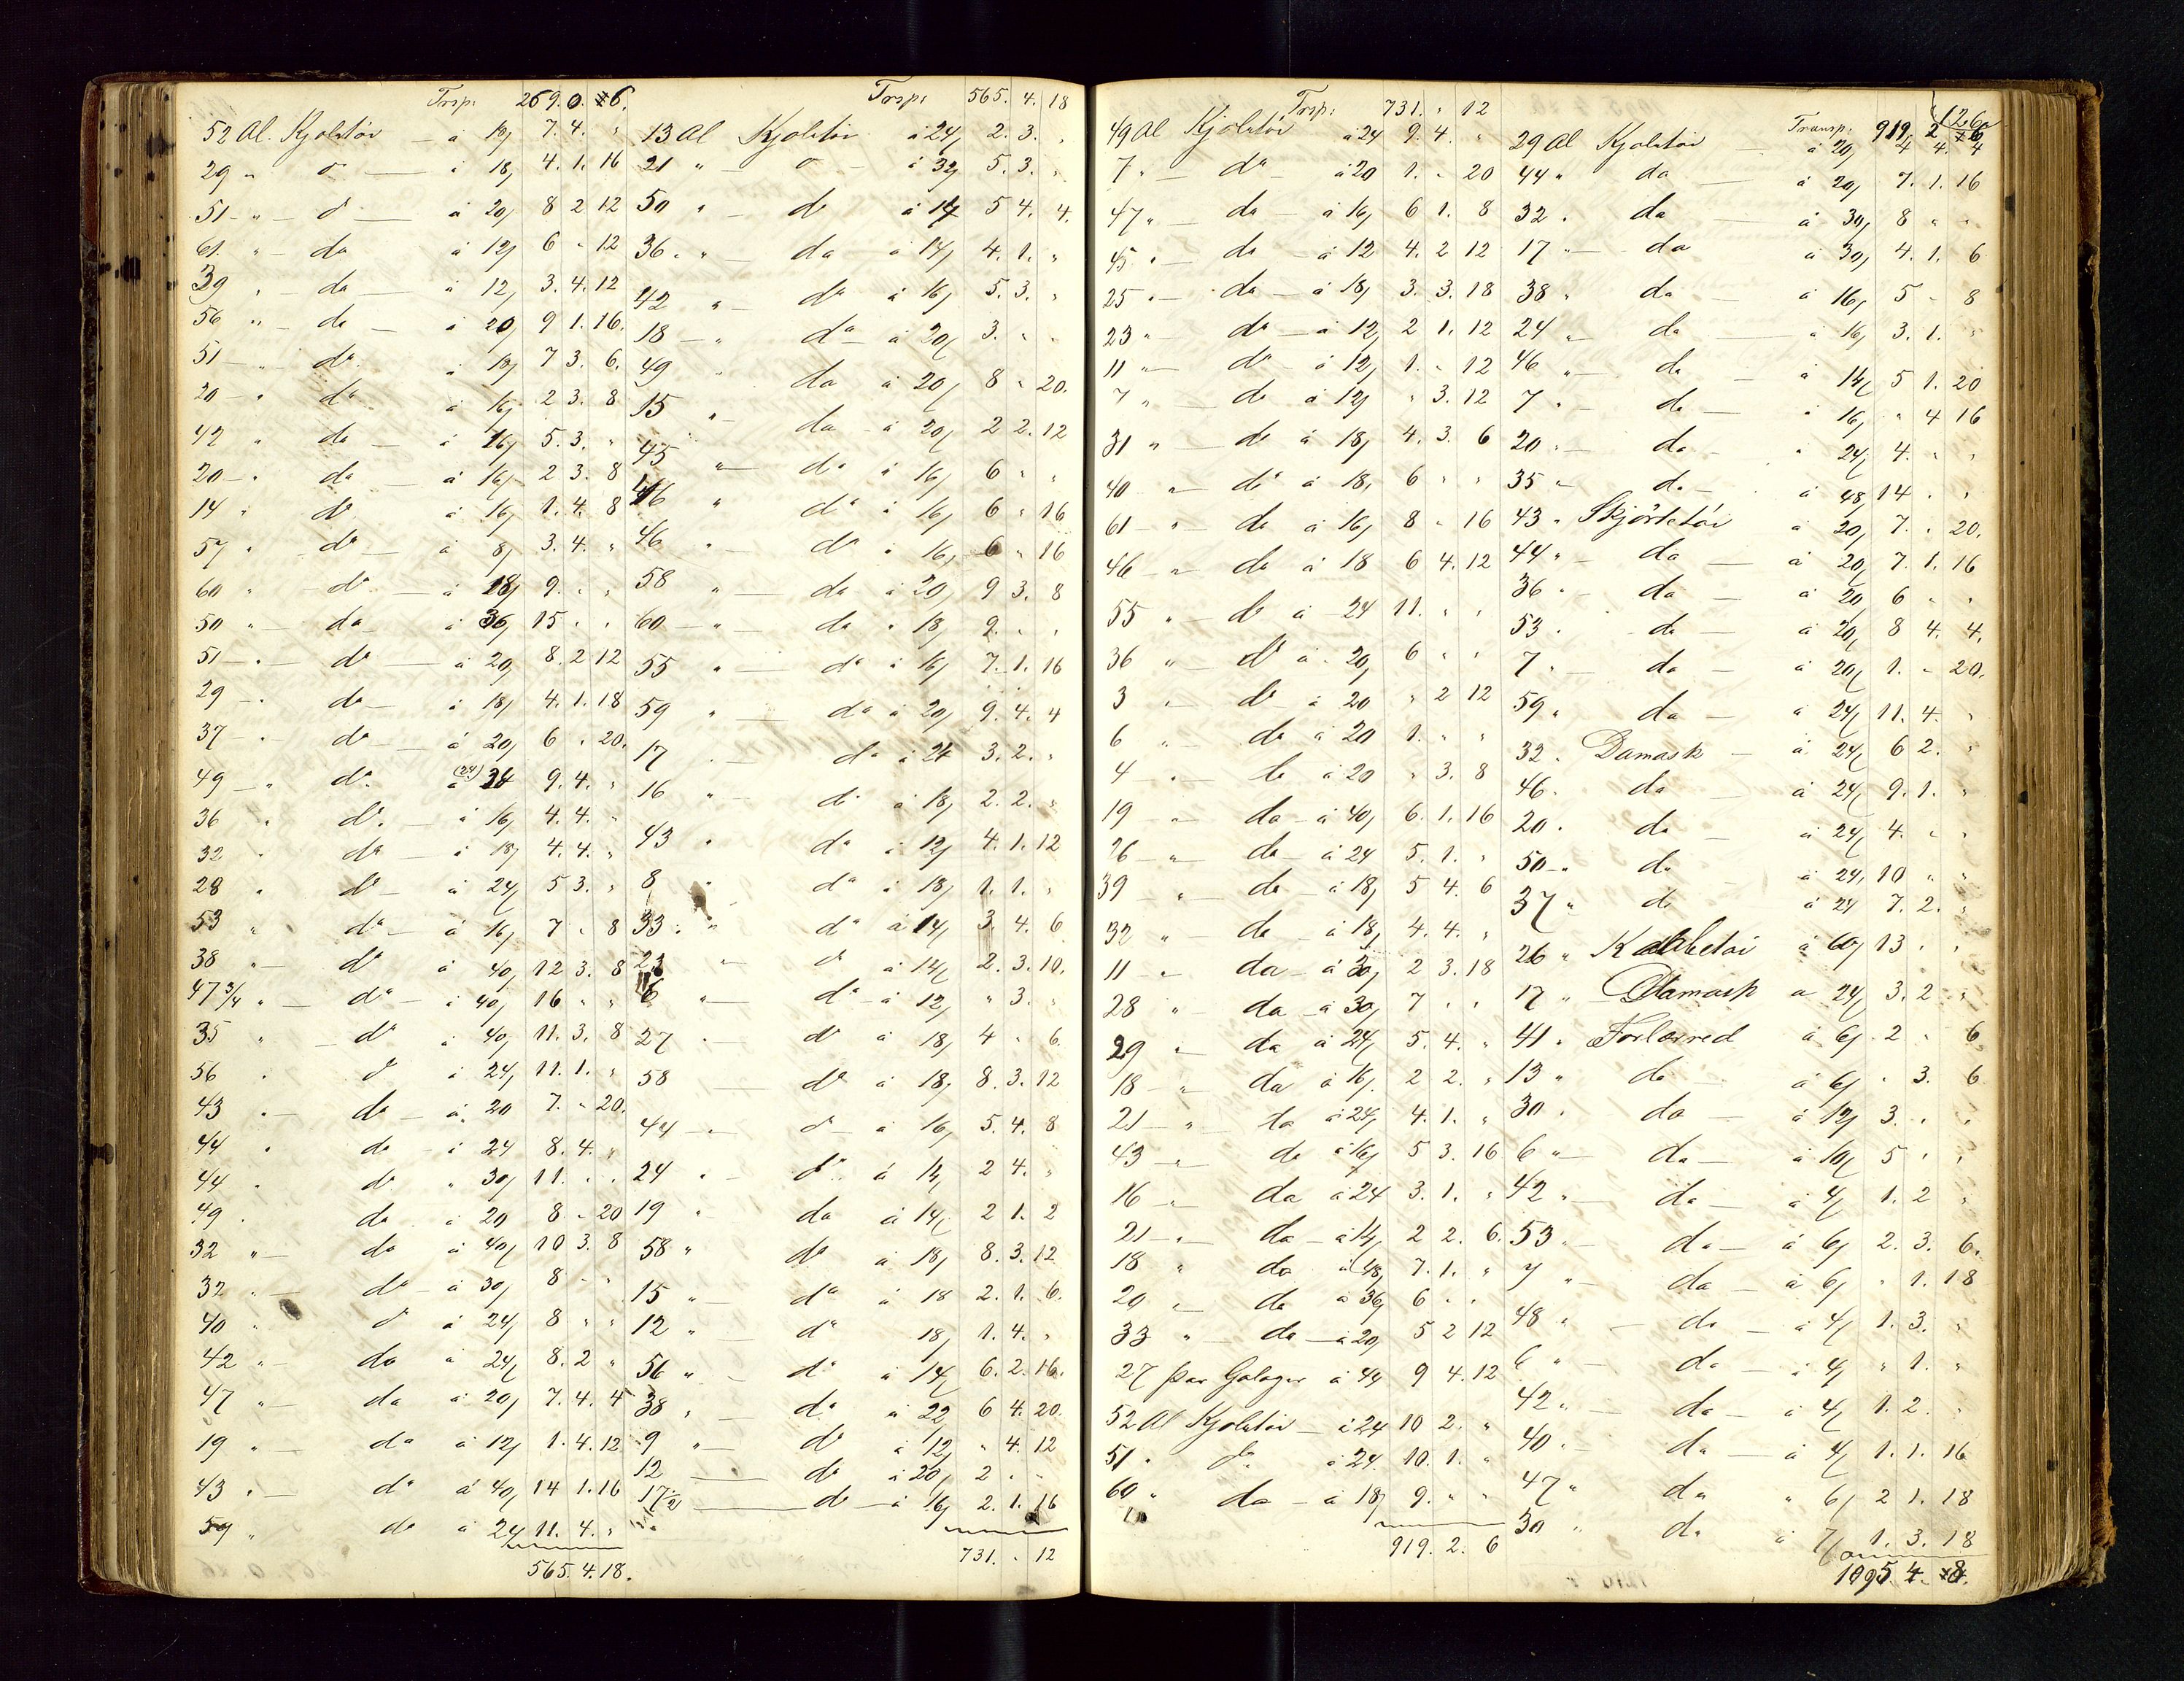 Trsp: 269.0. 6.
52 Al. Kjoletöi — á 18, 7.4. "
29 " d — á 18, 4.1.16
51 " — d — á 20, 8 2 12
61. " — do á 12, 6 " 12
39 " do — á 12, 3.4.12
56 " — do — á 20, 9 1.16.
51 — " do á 18, 7 3. 6.
20 — " do á 16, 2 3. 8
42 " do — á 16, 5.3. "
20 — " do — á 16, 2 3. 8
14 " do — á 16, 1.4. 8
57 " — do — á 8, 3.4. "
60 " — do — á 18, 9. " "
50 " — do — á 36, 15 " "
51 — " — do — á 20, 8.2 12
29 — " do — á 18, 4.1.18
37 — " do — á 20, 6 " 20.
49 — " do (24) á 34 9.4. "
36 " do — á 16, 4.4. "
32 " do — á 18, 4.4. "
28 " do — á 24, 5 3. "
53 " do — á 16, 7 " 8
38 " — do á 40, 12 3. 8
47 3/4 " — do — á 40, 16 " "
35 " — do á 40, 11.3. 8
56 " d á 24, 11.1. "
43 " — do — á 20 7. " 20.
44 " do — á 24 8.4. "
44 " do " 30, 11. " "
49 " do á 20 8 " 20
32 " — do á 40, 10 3. 8
32 " — do — á 30, 8 " "
40 " d á 24, 8 " "
42 " — do á 24, 8.2 "
47 " — do á 20, 7.4. 4
19 " — do á 12, 1.4.12
43 " — do á 40, 14 1.16
59 " do á 24 11.4. "
565.4.18.
Trsp: 565.4.18
13 Al Kjoletöi á 24, 2.3. "
21 " — d — á 32, 5.3. "
50 " — do á 14 5 4. 4.
36. " — do — á 14, 4.1. "
42 " — do á 16, 5.3. "
18 — " do — á 20, 3. " "
49 " do á 20, 8 " 20.
15 " — do — á 20, 2 2.12
45 " — do á 16, 6 " "
46 " do á 16, 6 " 16
46 " — do á 16, 6 " 16
58 " — do á 20, 9 3. 8
60 — " — do á 18, 9. " "
55 " — do á 16, 7.1.16
59 " — do á 20, 9.4. 4
17 " — do á 24 3.2. "
16 " — do á 18, 2.2. "
43 " do á 12, 4.1.12
8 " do á 18, 1.1. "
33 " do á 14, 3.4. 6
23 " — do á 14, 2.3.10.
6 " — do — á 12, " 3. "
27 " — do á 18, 4 " 6
58 — do á 18, 8.3.12
44 — " do á 16, 5.4. 8
24 " — do á 14, 2 4. "
19 " do á 14, 2 1. 2
58 " do á 18, 8.3.12
15 " — do á 18 2.1. 6.
12 " — do 18, 1.4. "
56 " — do á 14, 6.2.16.
38 " — do á 22, 6 4.20.
9 " — do á 12, " 4.12
12 — do á 20, 2. " "
17 1/2 — do — á 16, 2.1.16
731. " 12
Trsp: 731. " 12
49 Al Kjoletöi á 24 9.4. "
7 " — do — á 20 1. " 20
47 " — do — á 16, 6 1. 8
45 " — do — á 12 4.2 12
25 " — do — á 18, 3.3.18
23 " — do — á 12, 2 1.12
11 " — do — á 12, 1. " 12
7 " — do á 12, " 3.12
31 " — do á 18, 4.3. 6
40 " — do á 18, 6 " "
61 — " — do á 16, 8 " 16
46 — " — do á 18 6 4.12
55 " — do á 24 11. " "
36 " — do á 20, 6 " "
3 " — do á 20 " 2 12
6 " — do á 20 1. " "
4 " — do á 20 " 3. 8
19 — " — do — á 40, 6.1.16
26 — " do — á 24 5.1. "
39 " — do — á 18, 5 4. 6
32 " do — á 18, 4.4. "
11 — " — do — á 30, 2 3.18
28 " — do — á 30, 7 " "
29 " do á 24, 5.4. "
18 — " do á 16, 2 2. "
21 — " — do á 24, 4.1. "
43 — " do á 16, 5 3.16
16 — " do á 24 3.1. "
21 — " do — á 14, 2 2. 6.
18 " do á 48, 7.1. "
20 " — do á 36, 6 " "
33 " — do — á 20, 5 2 12
27 Par Galager á 44 9 4.12
52 Al Kjoletöi — á 24 10 2. "
51 " do á 24. 10.1. "
60 " do — á 18, 9. " "
919.2. 6
Transp: 919. 2 6
29 Al Kjoletöi — á 20, 4 4. 4
44 " do — á 20, 7.1.16
32 " do — á 30, 8 " "
17 " — do á 30, 4.1. 6
38 " do — á 16, 5 " 8
24 " — do — á 16, 3.1. "
46 " — do — á 14, 5 1.20
7 " — do — á 16, " 4 16
20 " — do — á 24, 4. " "
35 " — do — á 48, 14. " "
43 " Skjörtetöi á 20, 7. " 20.
44 " — do — á 20, 7.1.16
36 " — do — á 20, 6 " "
53 " do — á 20, 8 4. 4.
7 " do — á 20, 1. " 20.
59 " do — á 24, 11.4. "
32 " Damask — á 24, 6 2. "
46 " do — á 24, 9.1. "
20 " do — á 24, 4. " "
50 — " do — á 24, 10 " "
37 " do á 24 7.2. "
26 " Kaabetöi á 60, 13 " "
17 " Damask á 24, 3.2 "
41 " Forlærred á 6, 2 " 6
13 " do á 6, " 3. 6
30 " do — á 12, 3. " "
6 " — do — á 10, 5 " "
42 " — do — á 4, 1.2 "
53 " — do — á 6, 2.3. 6.
7 " — do — á 6, " 1.18
48 " — do — á 4, 1.3. "
6 " — do — á 4, " 1. "
42 " — do — á 4, 1.2. "
40 " — do — á 4, 1.1.16
47 " do " 6, 2 1.18
30 " do á 7, 1.3.18
1095.4. 8.